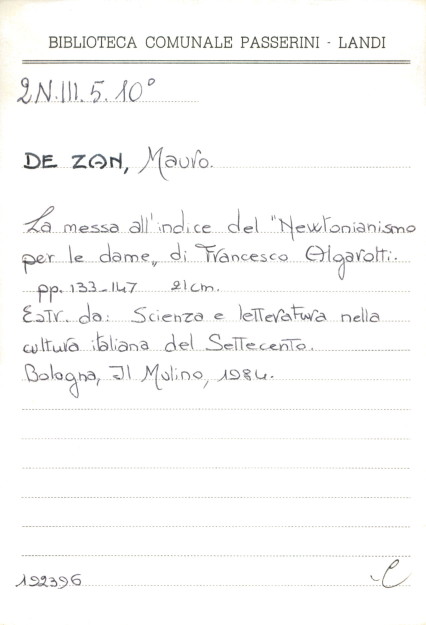 BIBLIOTECA COMUNALE PASSERINI - LANDI
2N.III.5.10°
DE ZAN, Mauro.
La messa all'indice del "Newtonianismo
per le dame„ di Francesco Algarotti.
pp. 133-147 21cm.
Estr. da: Scienza e letteratura nella
cultura italiana del Settecento.
Bologna, Il Mulino, 1984.
192396